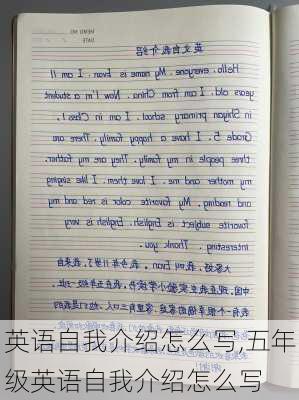 MEMO NO.
DATE
英文自我介绍
Hello, everyone. My name is Evan. I am 11
years old. I am from China. Now I'm a student
in Shiyan primary school. I am in Class 1,
Grade 5. I have a happy family. There are
three people in my family. They are my father,
my mother and me. I love them. I like singing
and reading. My favorite color is red and my
favorite subject is English. English is very
interesting. Thank you.
大家好，我叫 Evan。我今年11岁了。我来自
英语自我介绍怎么写,五年
级英语自我介绍怎么写